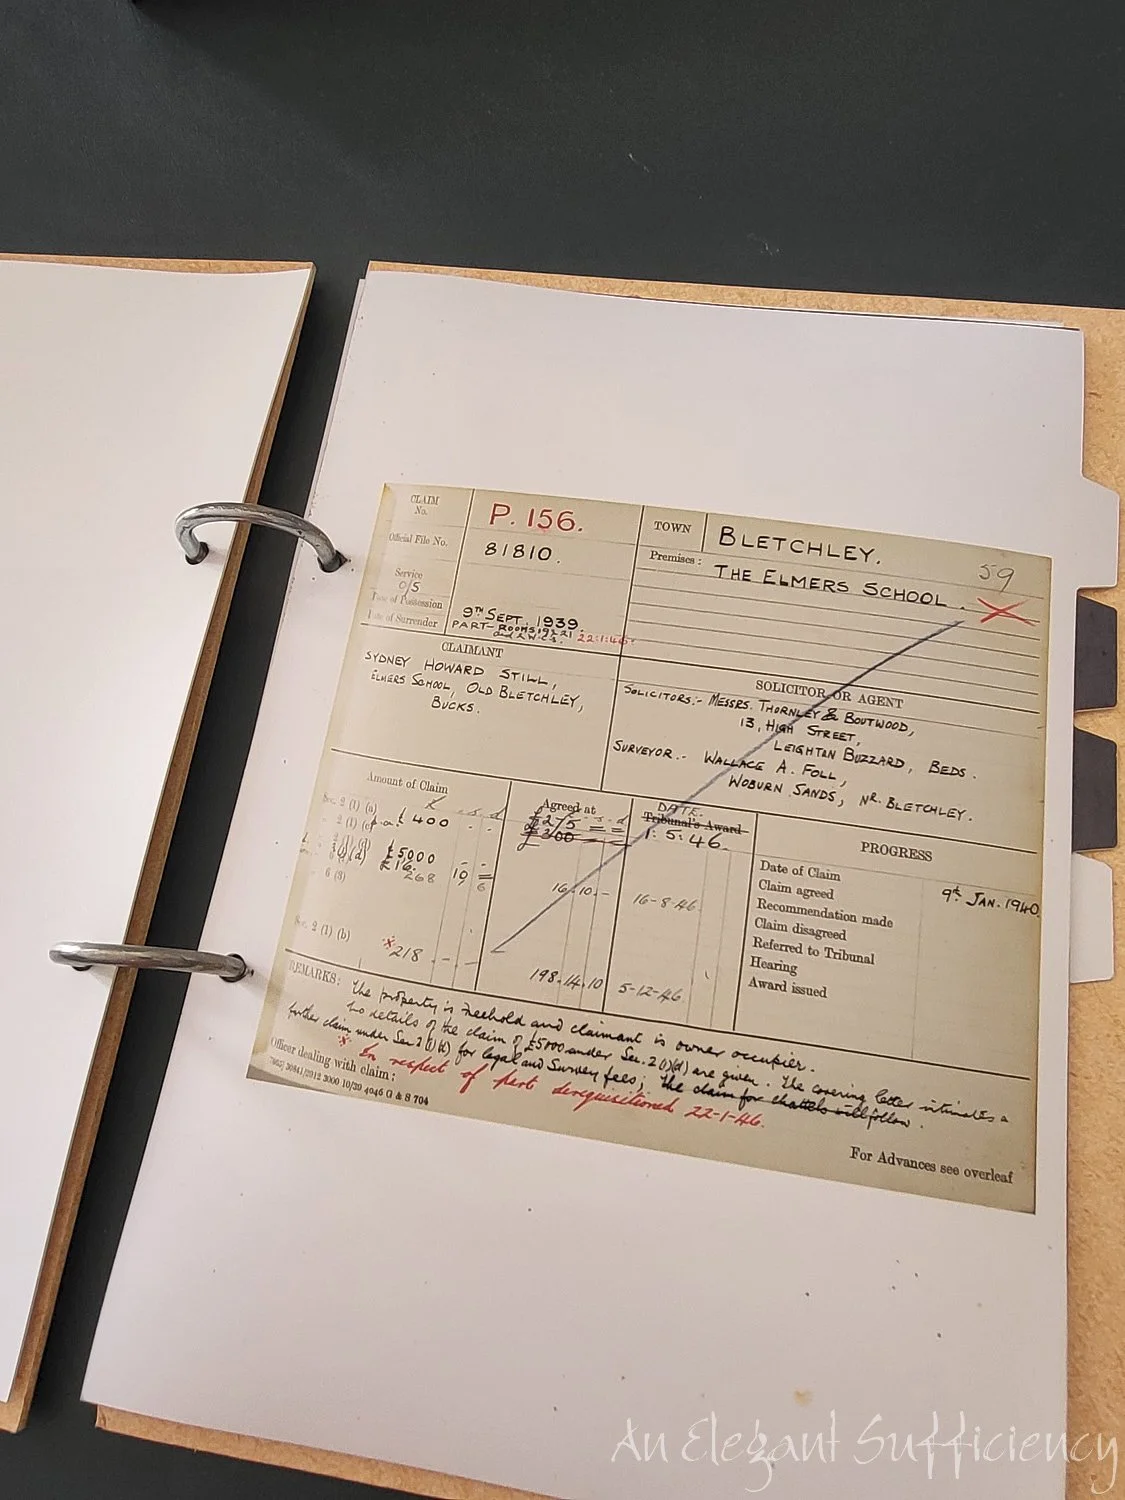 CLAIM No.
P. 156.
Official File No.
81810.
Service
O/S
Date of Possession
9TH SEPT. 1939
Date of Surrender
PART- ROOMS 19 & 21
and 2 W.C.s. 22:1:46.
TOWN
BLETCHLEY.
59
Premises:
THE ELMERS SCHOOL.
CLAIMANT
SYDNEY HOWARD STILL,
ELMERS SCHOOL, OLD BLETCHLEY,
BUCKS.
SOLICITOR OR AGENT
SOLICITORS:- MESSRS. THORNLEY & BOUTWOOD,
13, HIGH STREET,
LEIGHTON BUZZARD, BEDS.
SURVEYOR.- WALLACE A. FOLL,
WOBURN SANDS, NR. BLETCHLEY.
Amount of Claim
£ s. d
Sec. 2 (1) (a)
£ 400 - -
£5000 -
£16. 10
268 9 6
6 (3)
Sec. 2 (1) (b)
* 218 - -
Agreed at
£275 = =
£300
16.10.-
198.14.10
DATE.
Tribunal's Award
1:5:46.
16-8-46.
5-12-46.
PROGRESS
Date of Claim 9th JAN. 1940.
Claim agreed
Recommendation made
Claim disagreed
Referred to Tribunal
Hearing
Award issued
REMARKS: The property is freehold and claimant is owner occupier.
No details of the claim of £5000 under Sec. 2(1)(d) are given. The covering letter intimates a
further claim under Sec 2(1)(d) for legal and Survey fees; the claim for chattels will follow.
* In respect of part derequisitioned 22-1-46.
Officer dealing with claim:
30841/2912 3000 10/39 4046 G & S 704
For Advances see overleaf
An Elegant Sufficiency